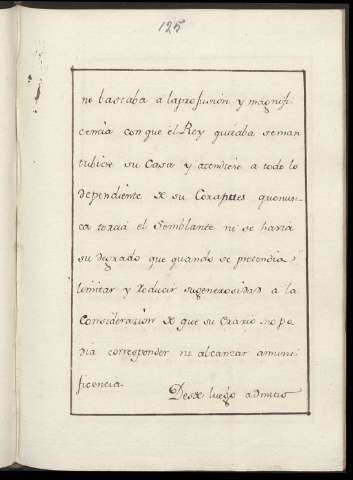 125
no bastaba a laprofusion y magnifi
cencia con que el Rey queria seman
tubiere su Casa y atendiere a todo lo
dependiente de su Corapues quenun
ca torcia el Semblante ni se havia
su degrado que quando se pretendia
limitar y reducir sugenerosidad a la
Consideracion de que su Erario no po
dia corresponder ni alcanzar amuni
ficencia.
Desde luego admitio